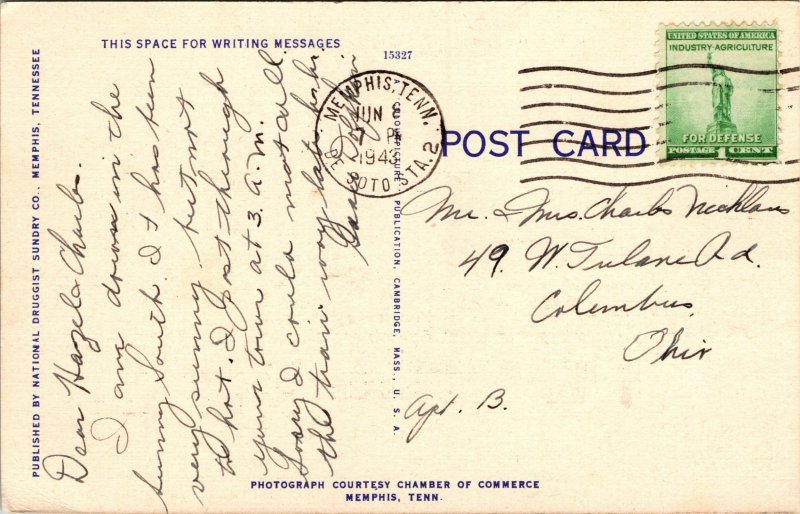 THIS SPACE FOR WRITING MESSAGES
15327
PUBLISHED BY NATIONAL DRUGGIST SUNDRY CO., MEMPHIS, TENNESSEE
Dear Hazel & Charles.
I am down in the
sunny South. It has been
very sunny, but not
to hot. I got through
your town at 3. a.m.
Sorry I could not call.
the train was late
MEMPHIS, TENN.
JUN
7 PM
1943
DE SOTO STA. 2
PUBLICATION, CAMBRIDGE, MASS., U. S. A.
POST CARD
UNITED STATES OF AMERICA
INDUSTRY·AGRICULTURE
FOR DEFENSE
POSTAGE 1 CENT
Mr. & Mrs. Charles Nicklaus
49. W. Tulane Rd.
Columbus,
Ohio
Apt. B.
PHOTOGRAPH COURTESY CHAMBER OF COMMERCE
MEMPHIS, TENN.